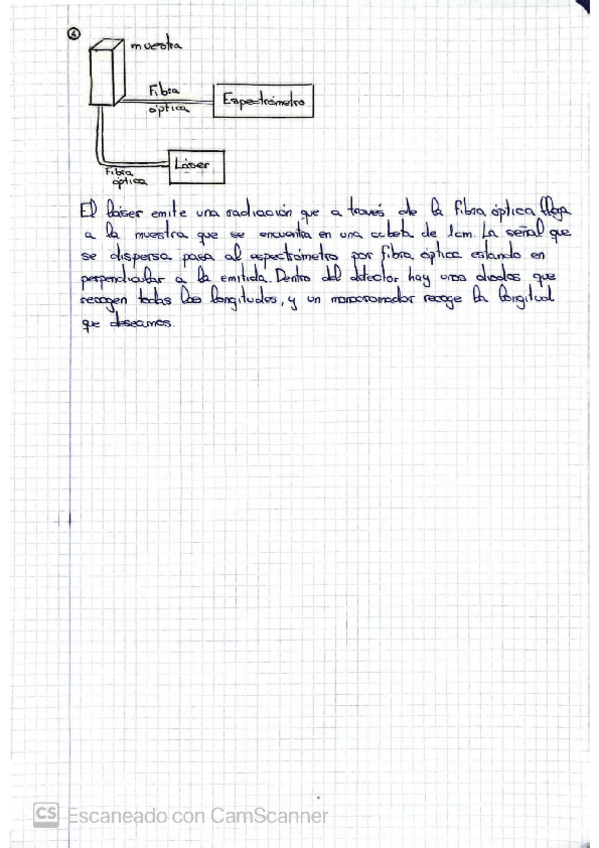 ④
muestra
Fibra
óptica
Espectrómetro
Fibra
óptica
Láser
El láser emite una radiación que a través de la fibra óptica llega
a la muestra que se encuentra en una cubeta de 1cm. La señal que
se dispersa pasa al espectrómetro por fibra óptica estando en
perpendicular a la emitida. Dentro del detector hay unos diodos que
recogen todas las longitudes, y un monocromador recoge la longitud
que deseamos.
CS Escaneado con CamScanner